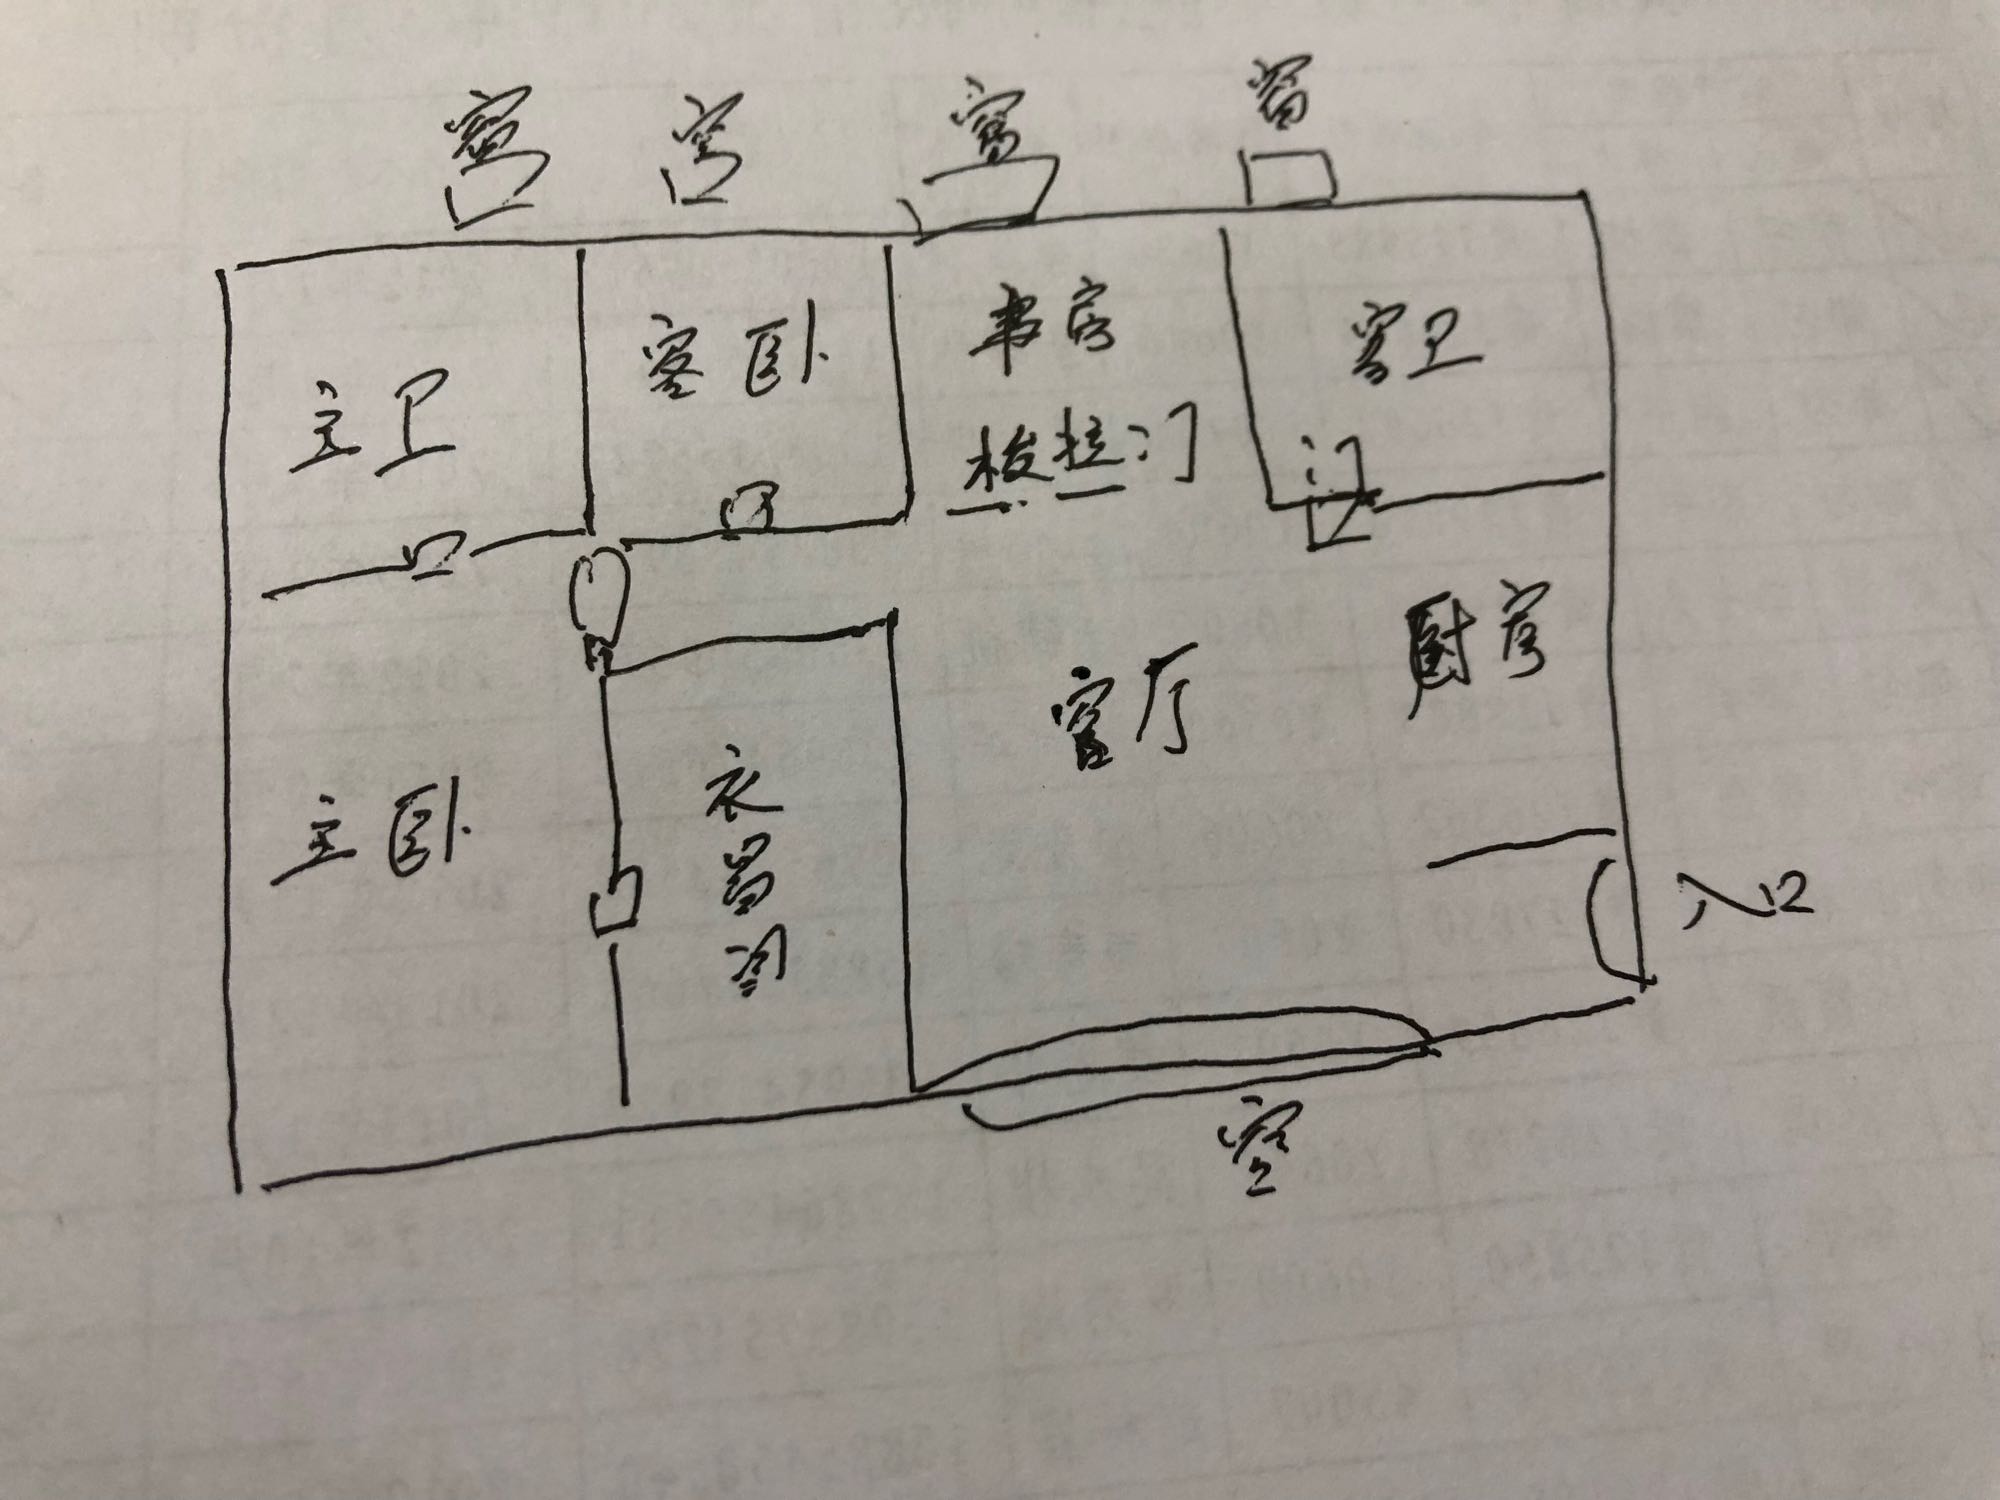 窗 窗 窗 窗
主卫
客卧
书房
梭拉门
客卫
门
厨房
客厅
主卧
衣冒间
入口
窗